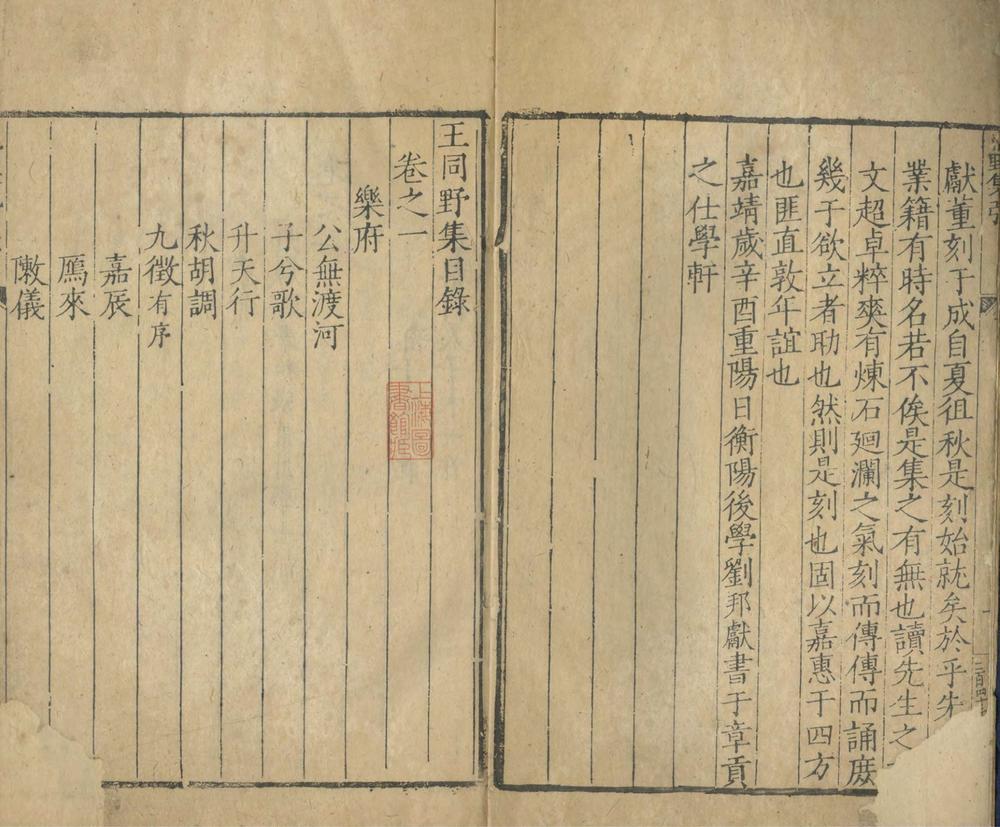 獻董刻于成自夏徂秋是刻始就矣於乎先
業籍有時名若不俟是集之有無也讀先生之
文超卓粹爽有煉石廻瀾之氣刻而傳傳而誦庶
幾于欲立者助也然則是刻也固以嘉惠于四方
也匪直敦年誼也
嘉靖歲辛酉重陽日衡陽後學劉邦獻書于章貢
之仕學軒
王同野集目錄
卷之一
樂府
公無渡河
子兮歌
升天行
秋胡調
九徵有序
嘉辰
鴈來
上海圖
書館藏